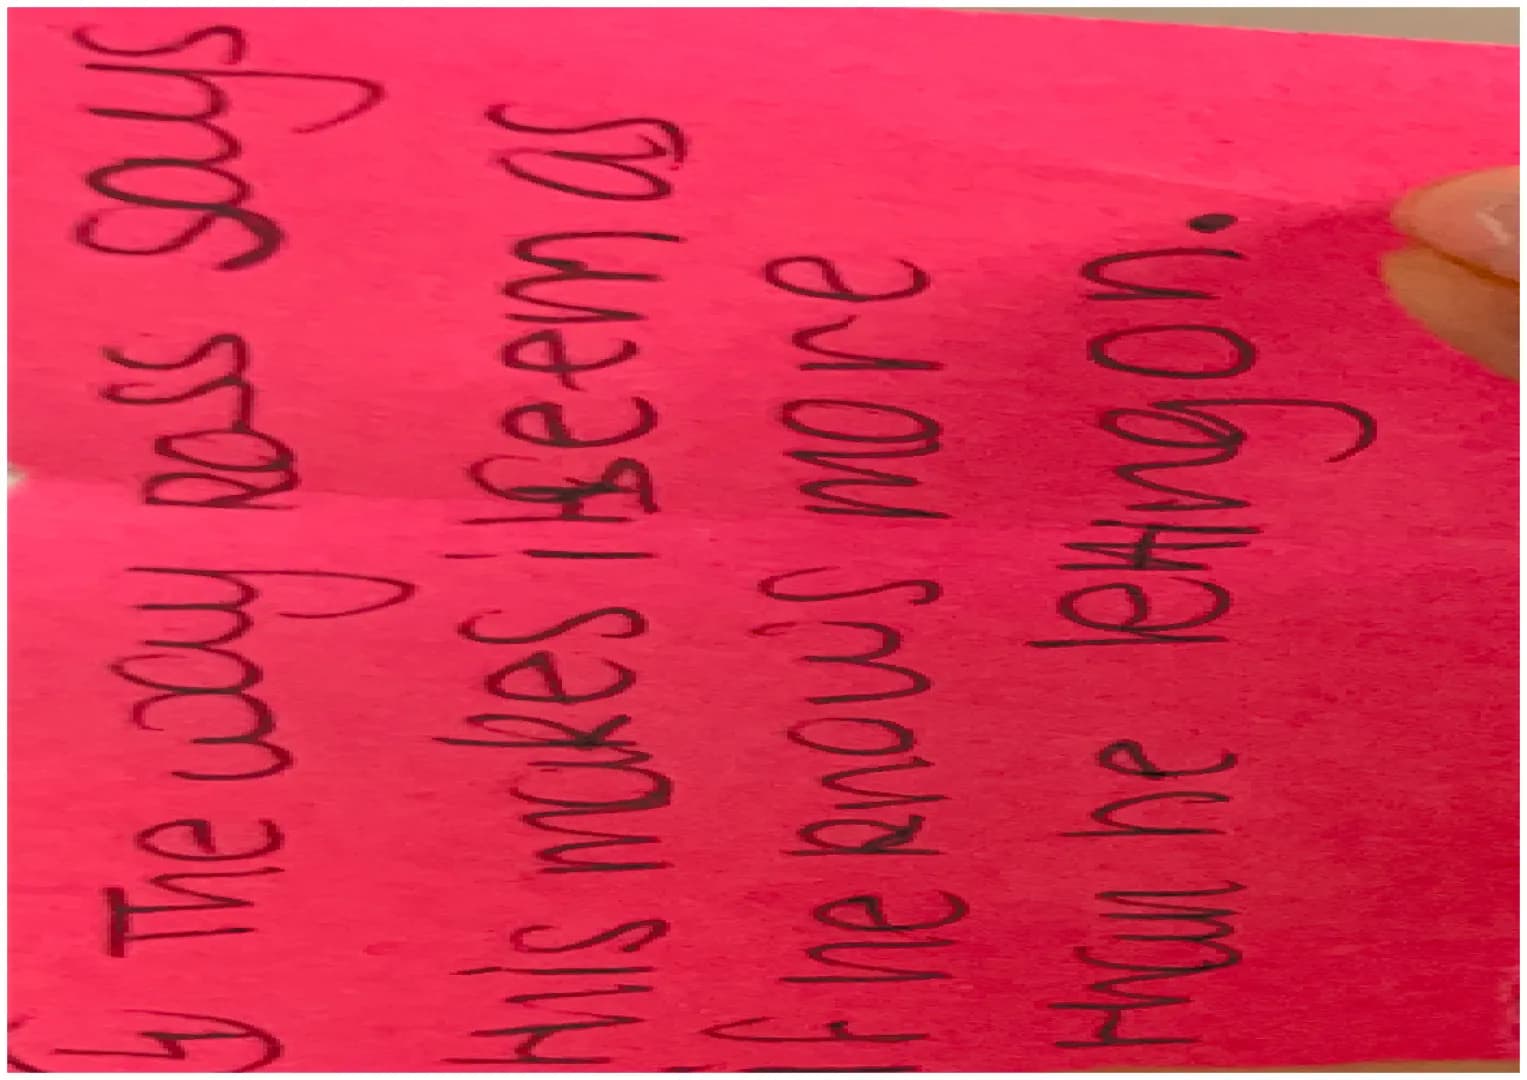 The way Ross says
this makes it seem as
if he knows more
than he letting on.